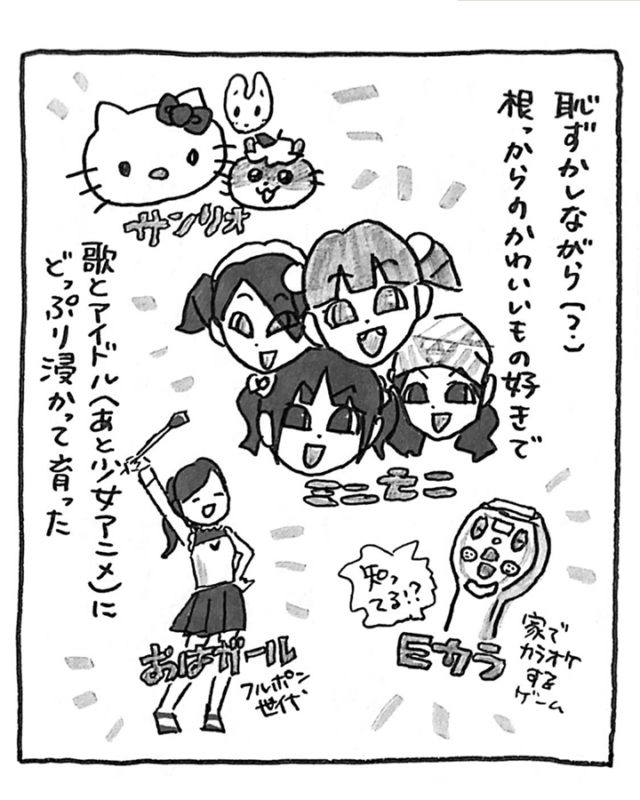 恥ずかしながら(?)
根っからのかわいいもの好きで
サンリオ
歌とアイドル(あと少女アニメ)に
どっぷり浸かって育った
ミニモニ
知っ
てる!?
Eカラ
家で
カラオケ
する
ゲーム
おっはガール
フルポン
世代